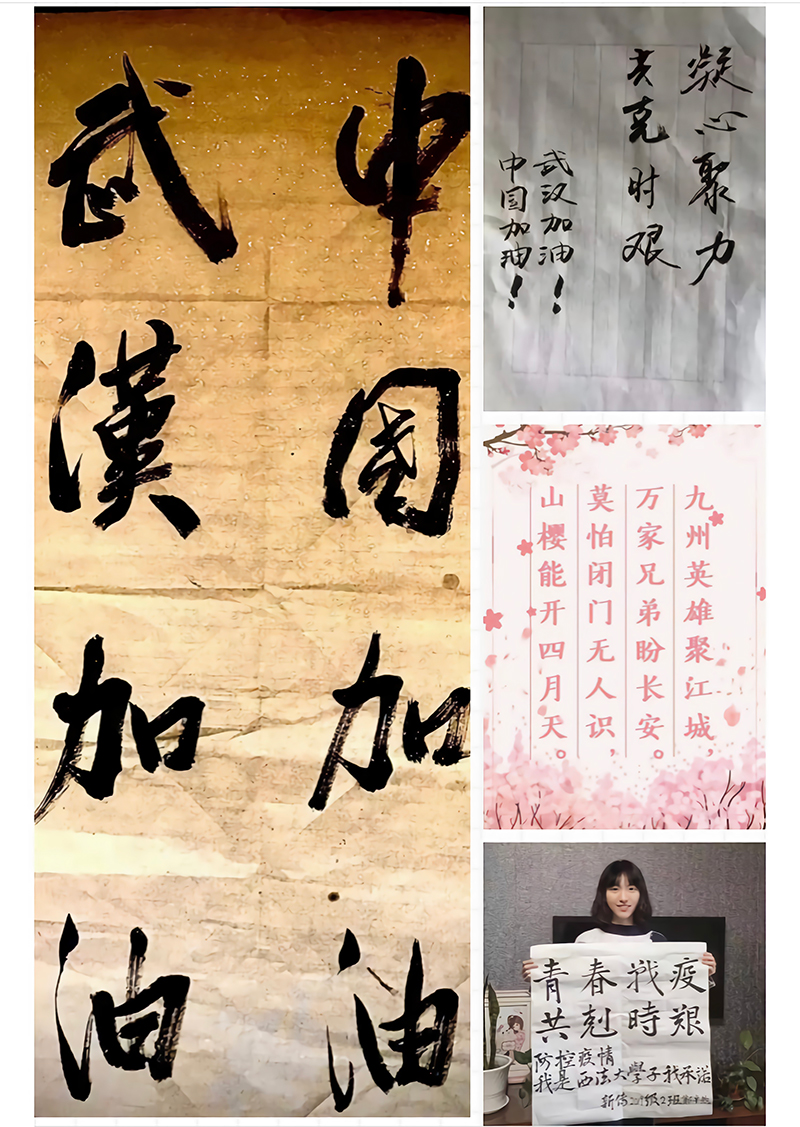 中國加油
武漢加油
凝心聚力
共克时艰
武汉加油！
中国加油！
九州英雄聚江城，
万家兄弟盼长安。
莫怕闭门无人识，
山樱能开四月天。
青春戰疫
共剋時艱
防控疫情
我是西法大學子我承诺
新传2019级2班